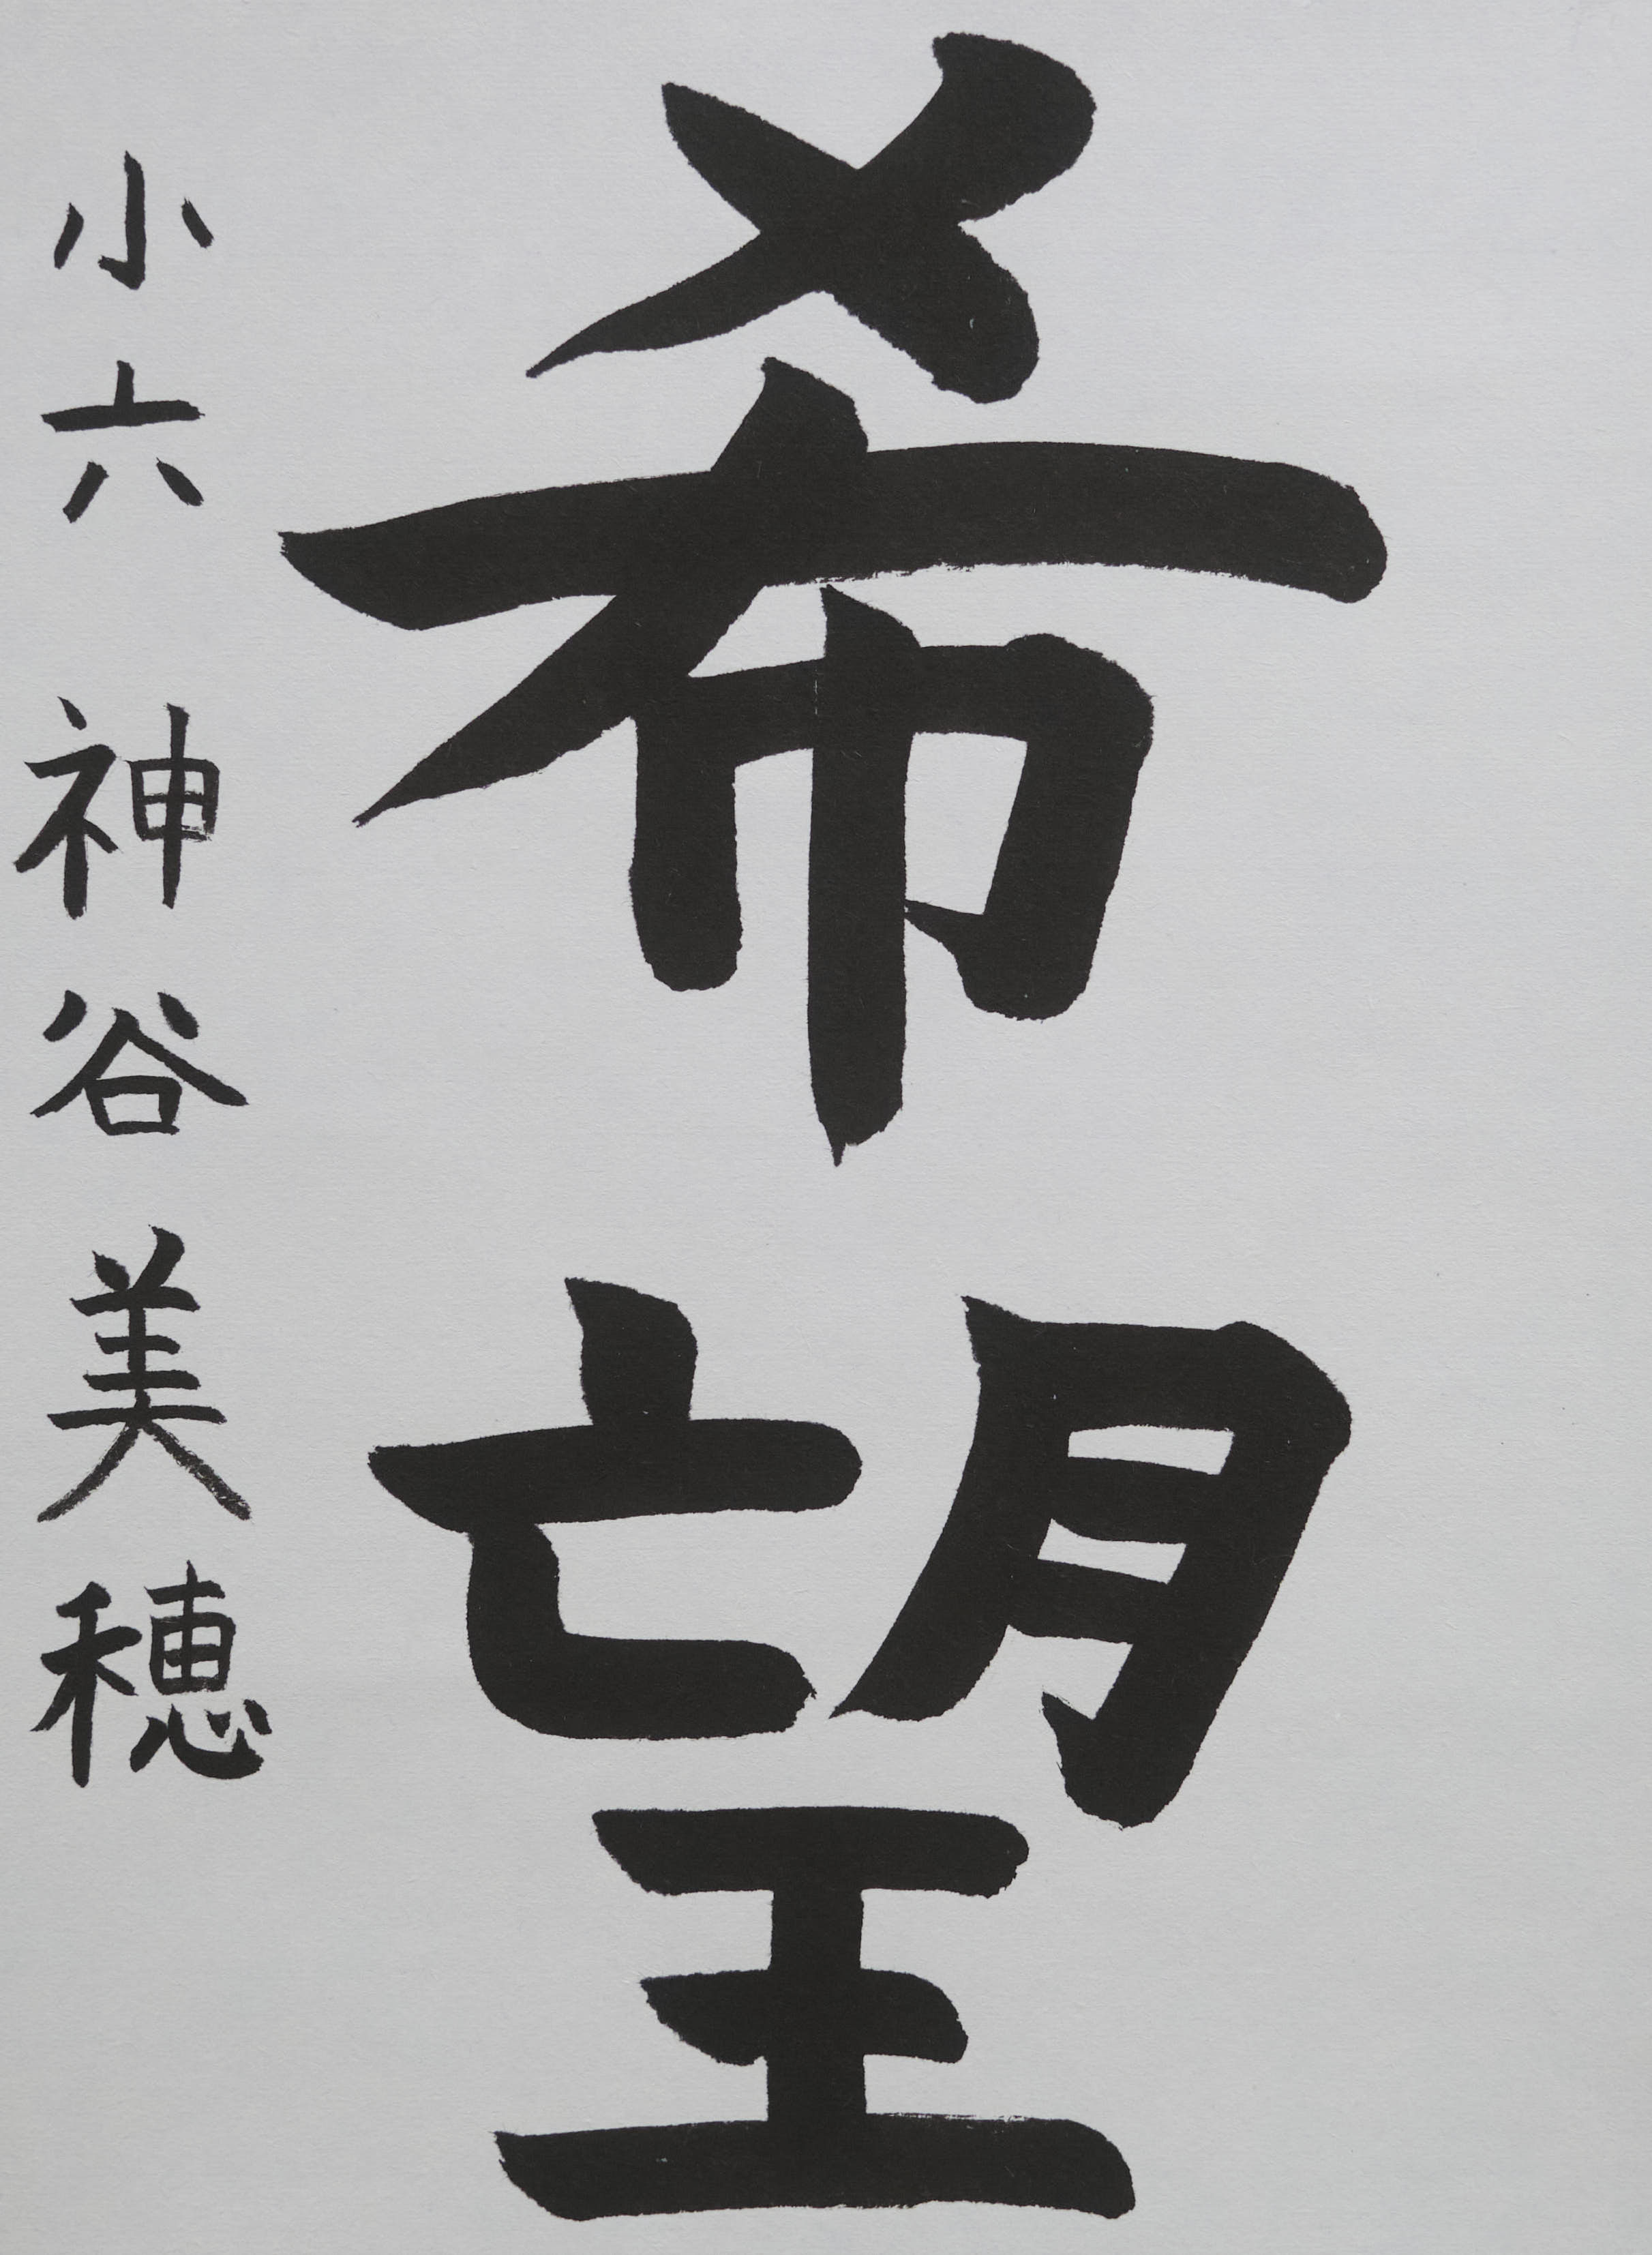 希望
小六 神谷美穂